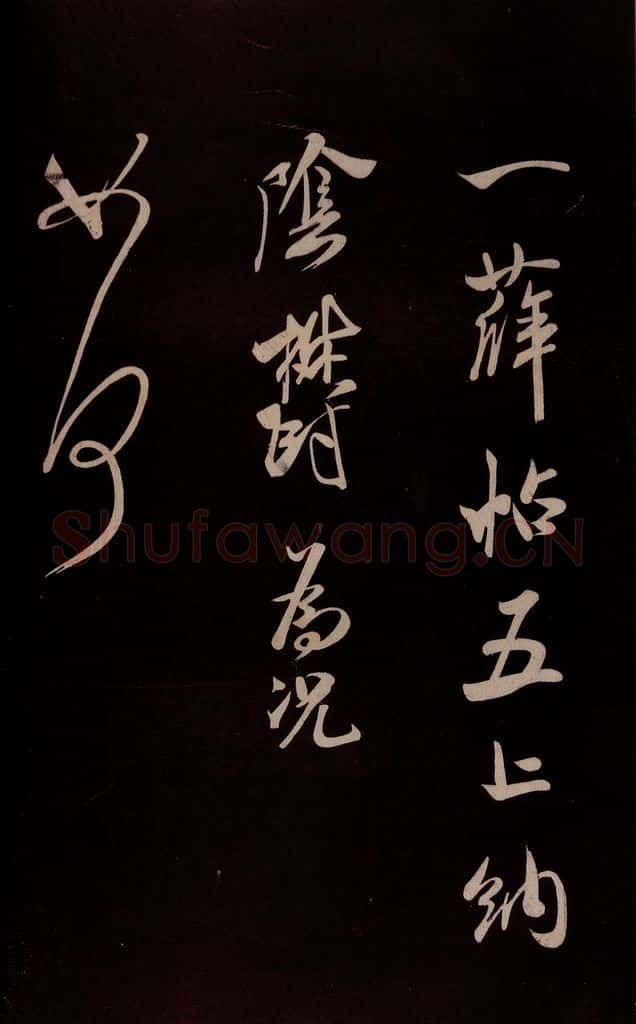 一薛帖五上納
陰鬱為況
如何
Shufawang.CN